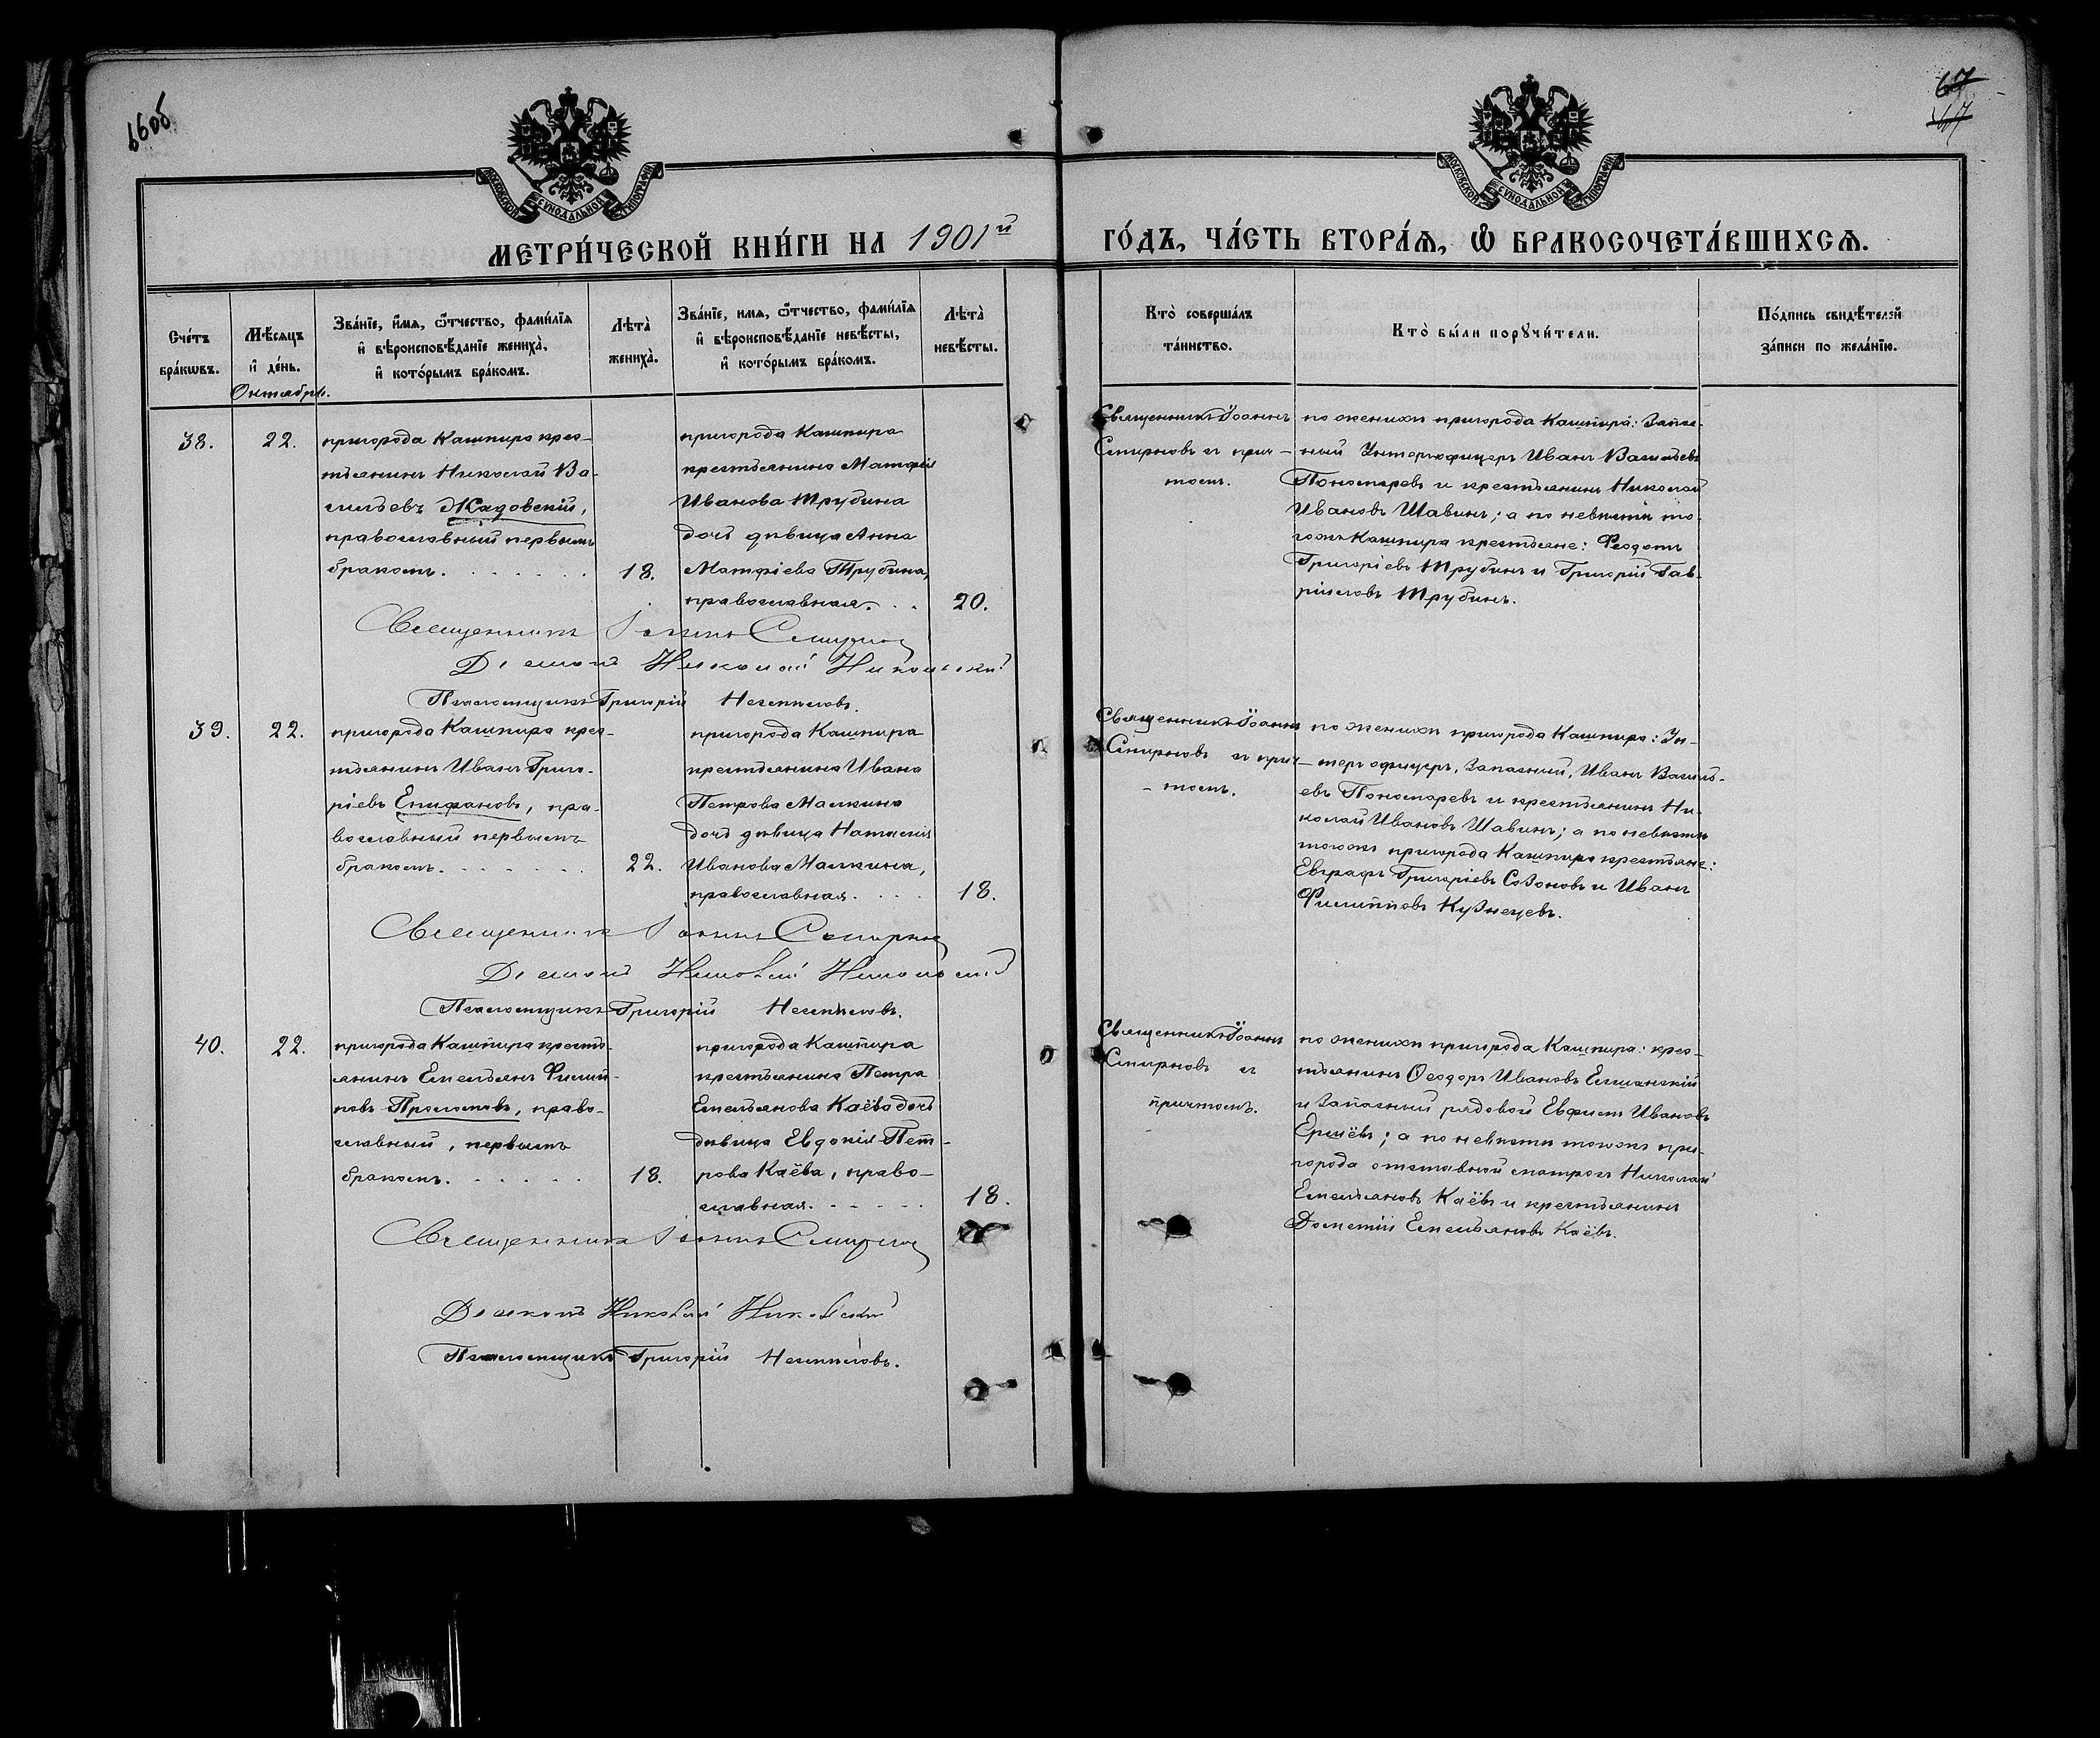 66об
67
67
МОСКОВСКОЙ СѴНОДАЛЬНОЙ ТИПОГРАФІИ
МОСКОВСКОЙ СѴНОДАЛЬНОЙ ТИПОГРАФІИ
МЕТРИ́ЧЕСКОЙ КНИ́ГИ НА 1901й
ГО́ДЪ, ЧА́СТЬ ВТОРА́Ѧ, Ѡ҆ БРАКОСОЧЕТА́ВШИХСѦ.
Сче́тъ
бра́кѡвъ.
Мѣ́сѧцъ
и҆ де́нь.
Зва́нїе, и҆́мѧ, ѻ҆́тчество, фами́лїѧ
и҆ вѣроисповѣ́данїе жениха̀,
и҆ кото́рымъ бра́комъ.
Лѣта̀
жениха̀.
Зва́нїе, имѧ, ѻ҆́тчество, фами́лїѧ
и҆ вѣроисповѣ́данїе невѣ́сты,
и҆ кото́рымъ бра́комъ.
Лѣта̀
невѣ́сты.
Кто̀ соверша́лъ
та́инство.
Кто̀ бы́ли порꙋчи́тели.
По́дпись свидѣ́телей
за́писи по жела́нїю.
Октября.
38.
22.
пригорода Кашпира крес-
тьянинъ Николай Ва-
сильевъ Жадовскій,
православный первымъ
бракомъ.
18.
пригорода Кашпира
крестьянина Матфія
Иванова Трубина
дочь дѣвица Анна
Матфіева Трубина,
православная.
20.
Священникъ Іоаннъ
Смирновъ съ прич-
томъ.
по женихѣ пригорода Кашпира: Запас-
ный Унтерофицеръ Иванъ Васильевъ
Пономаревъ и крестьянинъ Николай
Ивановъ Шавинъ; а по невѣстѣ то-
гожъ Кашпира крестьяне: Феодотъ
Григоріевъ Трубинъ и Григорій Гав-
ріиловъ Трубинъ.
Священникъ Іоаннъ Смирнов
Діаконъ Николай Никольскій
Псаломщикъ Григорій
39.
22.
пригорода Кашпира крес-
тьянинъ Иванъ Григо-
ріевъ Епифановъ, пра-
вославный первымъ
бракомъ.
22.
пригорода Кашпира
крестьянина Ивана
Петрова Малкина
дочь дѣвица Наталія
Иванова Малкина,
православная.
18.
Священникъ Іоаннъ
Смирновъ съ прич-
томъ.
по женихѣ пригорода Кашпира: Ун-
теръ офицеръ, Запасный, Иванъ Василь-
евъ Пономаревъ и крестьянинъ Ни-
колай Ивановъ Шавинъ; а по невѣстѣ
тогожъ пригорода Кашпира крестьяне:
Евграфъ Григоріевъ Созоновъ и Иванъ
Филипповъ Кузнецевъ.
Священникъ Іоаннъ Смирнов
Діаконъ Николай Никольскій
Псаломщикъ Григорій
40.
22.
пригорода Кашпира кресть-
янинъ Емельянъ Филип-
повъ, право-
славный, первымъ
бракомъ.
18.
пригорода Кашпира
крестьянина Петра
Емельянова Каёва дочь
дѣвица Евдокія Пет-
рова Каёва, право-
славная.
18.
Священникъ Іоаннъ
Смирновъ съ
причтомъ.
по женихѣ пригорода Кашпира: крес-
тьянинъ Ѳеодоръ Ивановъ
и Запасный рядовой Ивановъ
Ершёвъ; а по невѣстѣ тогожъ при-
города отставной матросъ Николай
Емельяновъ Каёвъ и крестьянинъ
Дометій Емельяновъ Каёвъ.
Священникъ Іоаннъ Смирнов
Діаконъ Николай Никольскій
Псаломщикъ Григорій